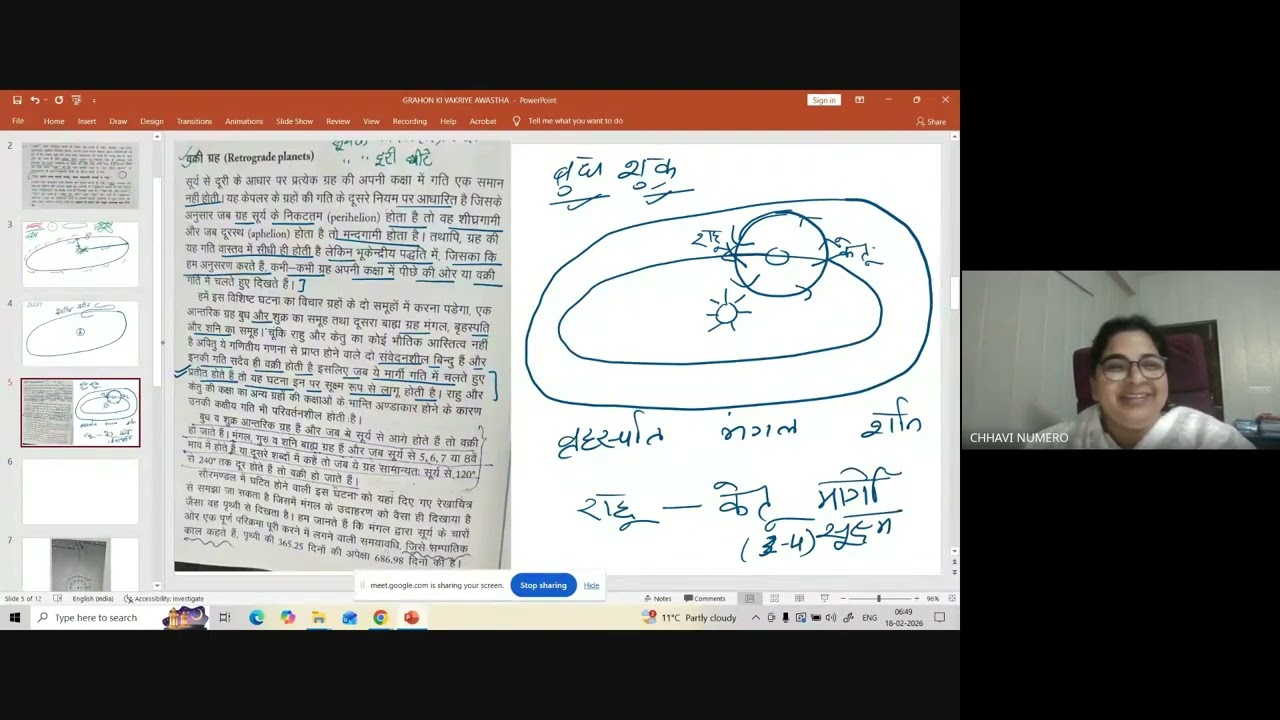 GRAHON KI VAKRIYE AWASTHA - PowerPoint
Sign in
File Home Insert Draw Design Transitions Animations Slide Show Review View Recording Help Acrobat Tell me what you want to do Share
2
3
4
5
6
7
वक्री ग्रह (Retrograde planets)
सूर्य से दूरी के आधार पर प्रत्येक ग्रह की अपनी कक्षा में गति एक समान
नही होती। यह केपलर के ग्रहों की गति के दूसरे नियम पर आधारित है जिसके
अनुसार जब ग्रह सूर्य के निकटतम (perihelion) होता है तो वह शीघ्रगामी
और जब दूरस्थ (aphelion) होता है तो मन्दगामी होता है। तथापि, ग्रह की
यह गति वास्तव में सीधी ही होती है लेकिन भूकेन्द्रीय पद्धति में, जिसका कि
हम अनुसरण करते हैं, कभी-कभी ग्रह अपनी कक्षा में पीछे की ओर या वक्री
गति में चलते हुए दिखते हैं।
हमे इस विशिष्ट घटना का विचार ग्रहों के दो समूहों में करना पड़ेगा, एक
आन्तरिक ग्रह बुध और शुक्र का समूह तथा दूसरा बाह्य ग्रह मंगल, बृहस्पति
और शनि का समूह। चूंकि राहु और केतु का कोई भौतिक आस्तित्व नहीं
है अपितु ये गणितीय गणना से प्राप्त होने वाले दो संवेदनशील बिन्दु हैं और
इनकी गति सदैव ही वक्री होती है इसलिए जब ये मार्गी गति में चलते हुए
प्रतीत होते हैं तो यह घटना इन पर सूक्ष्म रूप से लागू होती है। राहु और
केतु की कक्षा का अन्य ग्रहों की कक्षाओं के भान्ति अण्डाकार होने के कारण
उनकी कक्षीय गति भी परिवर्तनशील होती है।
बुध व शुक्र आन्तरिक ग्रह हैं और जब वे सूर्य से आगे होते हैं तो वक्री
हो जाते हैं। मंगल, गुरु व शनि बाह्य ग्रह हैं और जब सूर्य से 5, 6, 7 या 8वें
भाव में होते हैं या दूसरे शब्दों में कहें तो जब ये ग्रह सामान्यतः सूर्य से 120°
से 240° तक दूर होते हैं तो वक्री हो जाते हैं।
सौरमण्डल में घटित होने वाली इस घटना को यहां दिए गए रेखाचित्र
से समझा जा सकता है जिसमें मंगल के उदाहरण को वैसा ही दिखाया है
जैसा वह पृथ्वी से दिखता है। हम जानते हैं कि मंगल द्वारा सूर्य के चारों
ओर एक पूर्ण परिक्रमा पूरी करने में लगने वाली समयावधि, जिसे सम्पातिक
काल कहते हैं, पृथ्वी की 365.25 दिनों की अपेक्षा 686.98 दिनों की है।
बुध शुक्र
राहु केतु
बृहस्पति मंगल शनि
राहु — केतु मार्गी
सूक्ष्म
meet.google.com is sharing your screen. Stop sharing Hide
Slide 5 of 12 English (India) Accessibility: Investigate Notes Comments 96%
Type here to search
11°C Partly cloudy ENG
06:49
18-02-2026
CHHAVI NUMERO